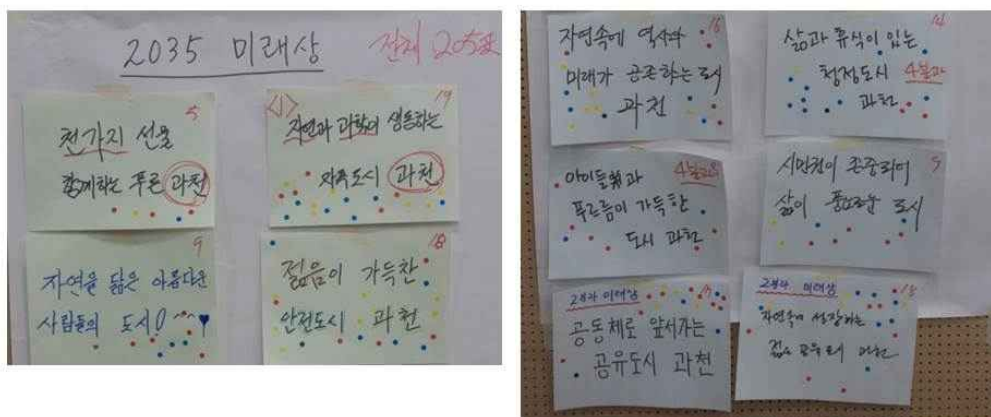 2035 미래상
전체 205표
5
천가지 선물
함께하는 푸른 과천
<1>
19
자연과 과학이 생동하는
자족도시 과천
9
자연을 닮은 아름다운
사람들의 도시!
18
젊음이 가득찬
안전도시 과천
16
자연속에 역사와
미래가 공존하는 도시
과천
14
삶과 휴식이 있는
청정도시 4분과
과천
4분과
아이들과
푸르름이 가득한
도시 과천
시민권이 존중되어
삶이 풍요로운 도시
2분과 미래상
공동체로 앞서가는
공유도시 과천
2분과 미래상
18
자연속에 성장하는
젊은 공유도시 과천